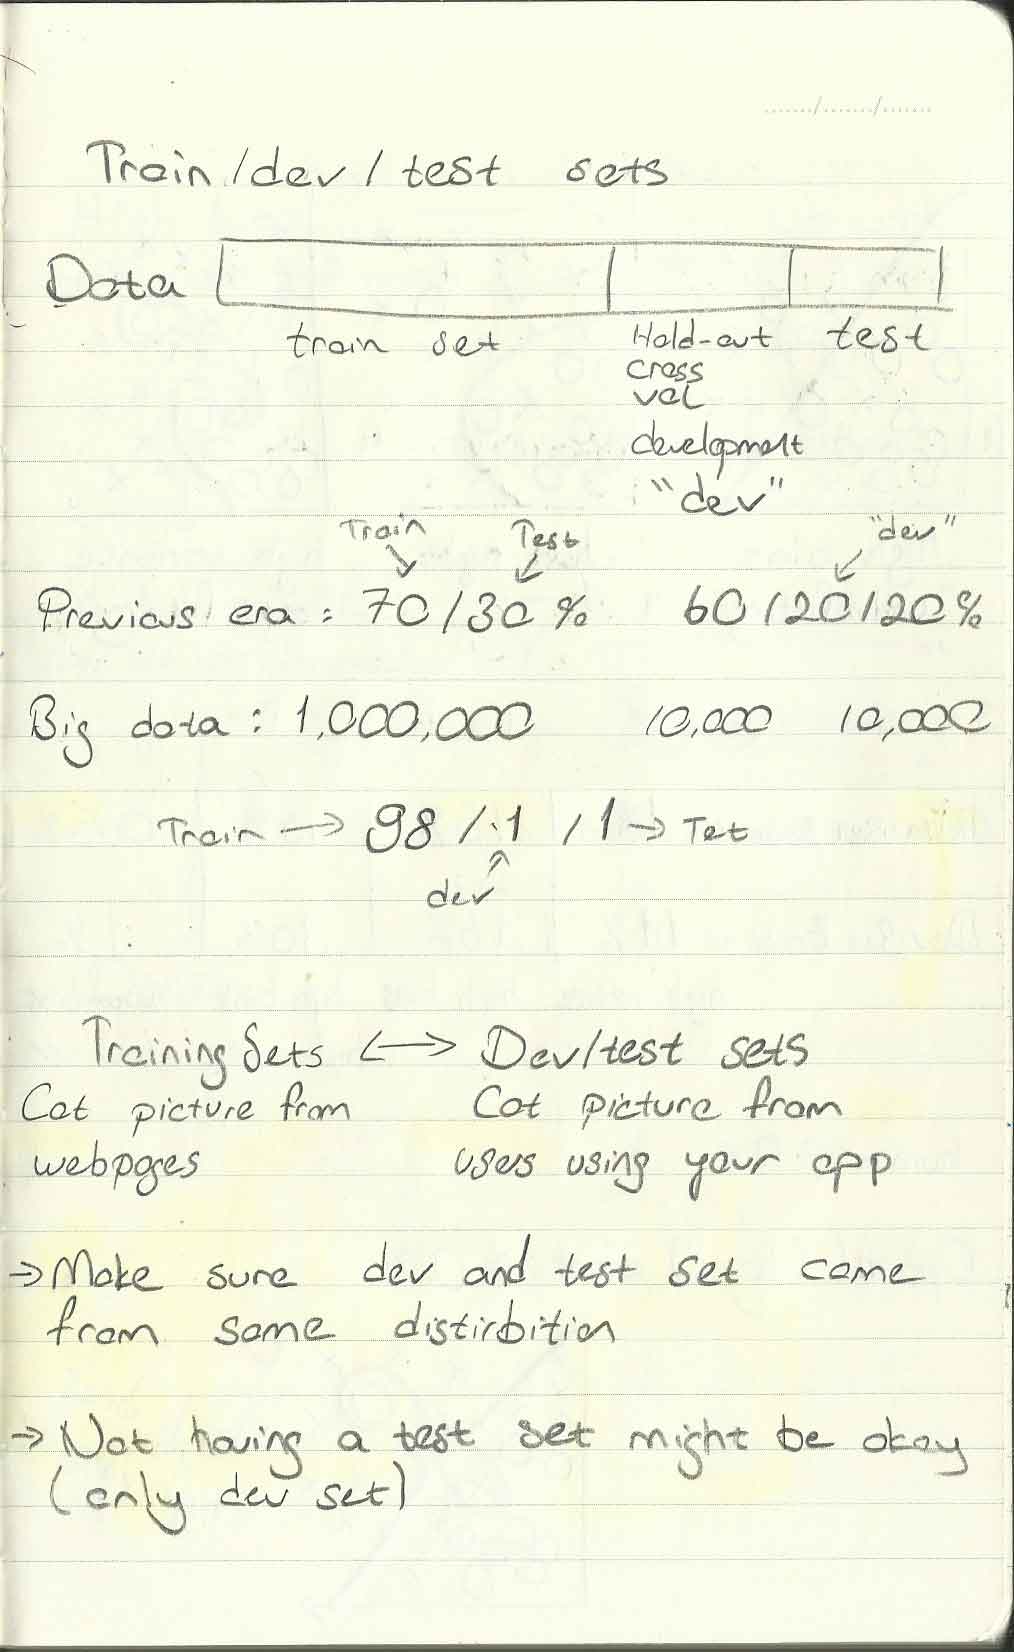 Train/dev/test sets
Data
train set
Hold-out
cross
val
development
"dev"
test
Train
Test
"dev"
Previous era : 70/30 %
60/20/20%
Big data : 1,000,000 10,000 10,000
Train → 98 / .1 / 1 → Tet
dev
Training Sets ↔ Dev/test sets
Cat picture from
webpages
Cat picture from
users using your app
→ Make sure dev and test set come
from same distirbition
→ Not having a test set might be okay
(only dev set)